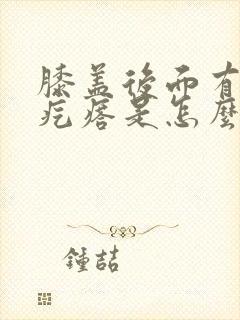 膝盖後面有
疙瘩是怎麼
鍾喆